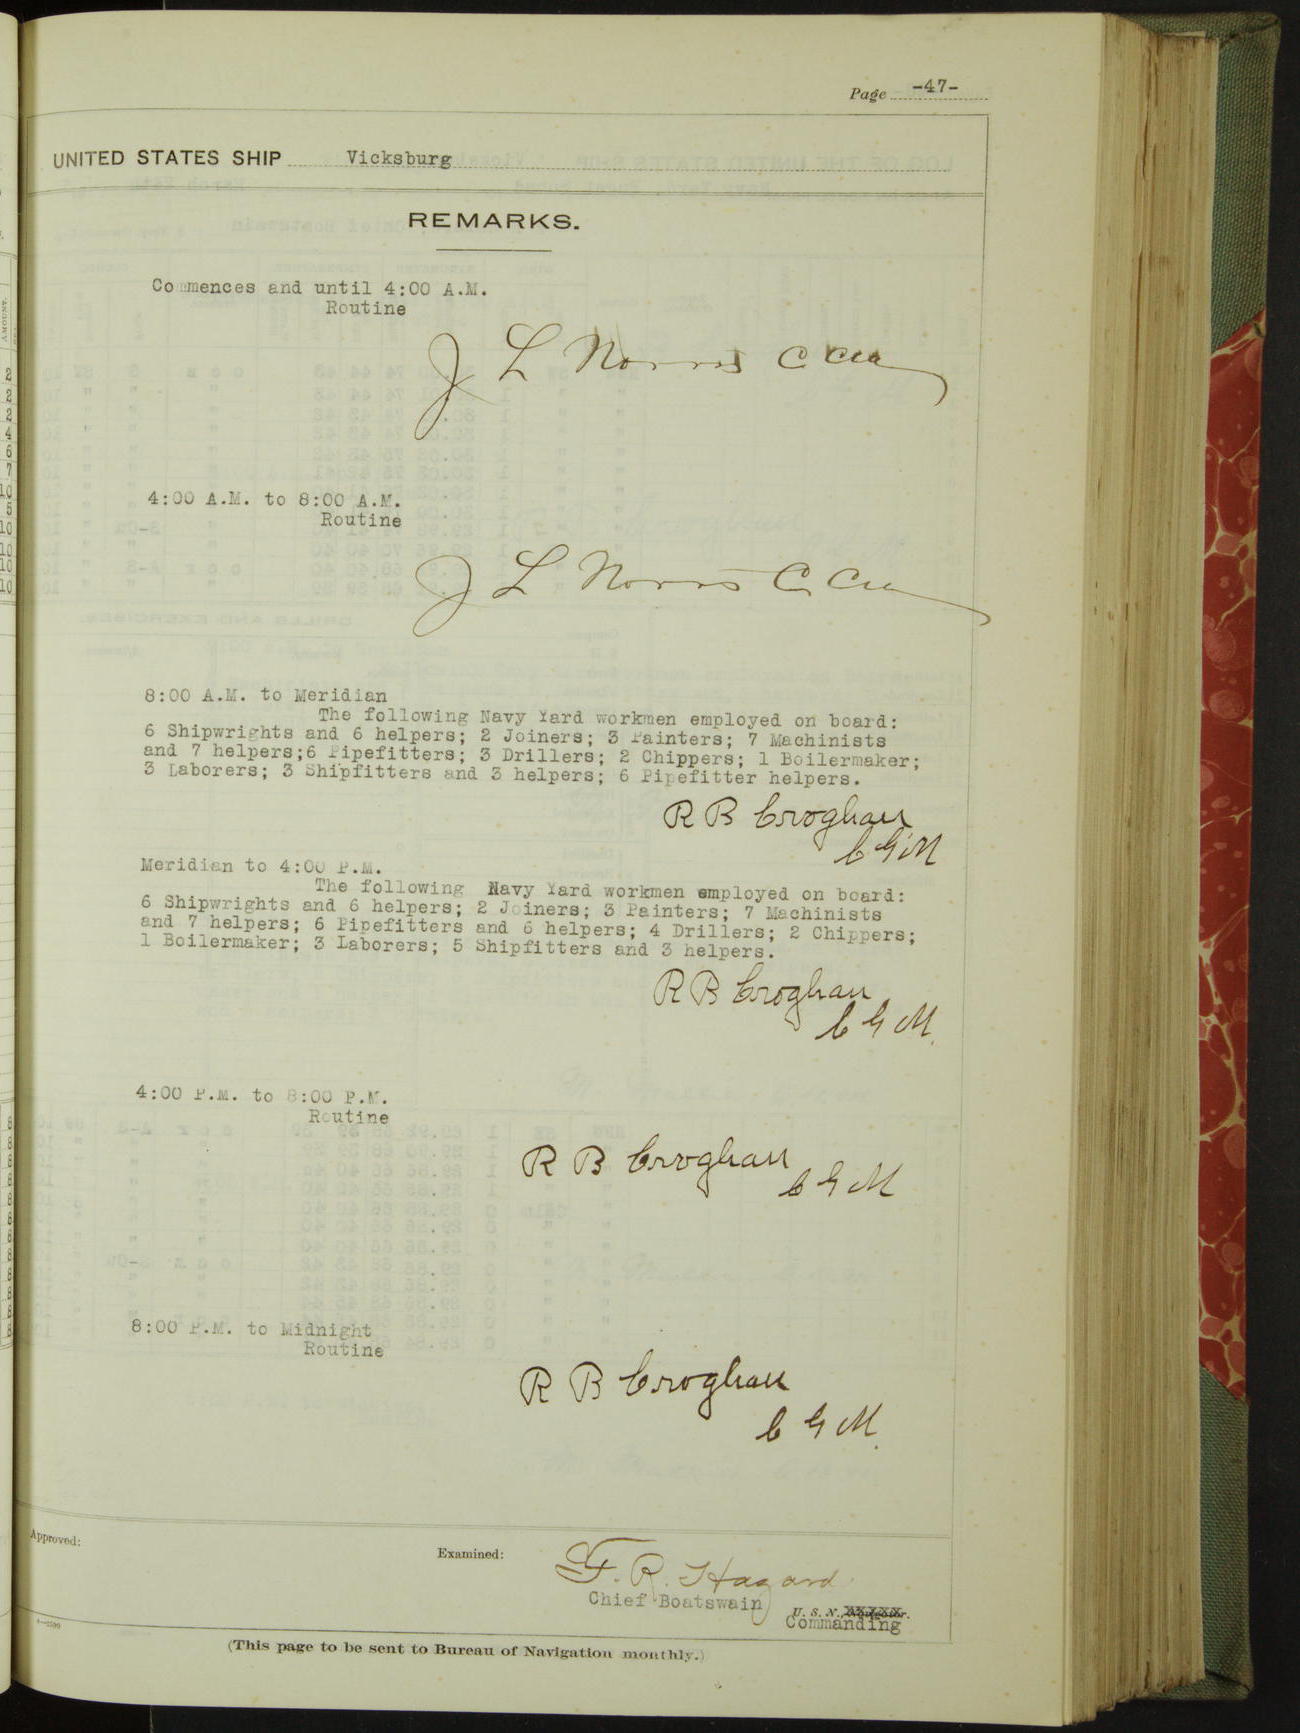 Page -47-
UNITED STATES SHIP Vicksburg
REMARKS.
Commences and until 4:00 A.M.
Routine
J L Norris C
4:00 A.M. to 8:00 A.M.
Routine
J L Norris C
8:00 A.M. to Meridian
The following Navy Yard workmen employed on board:
6 Shipwrights and 6 helpers; 2 Joiners; 3 Painters; 7 Machinists
and 7 helpers;6 Pipefitters; 3 Drillers; 2 Chippers; 1 Boilermaker;
3 Laborers; 3 Shipfitters and 3 helpers; 6 Pipefitter helpers.
R B Croghan
C G M
Meridian to 4:00 P.M.
The following Navy Yard workmen employed on board:
6 Shipwrights and 6 helpers; 2 Joiners; 3 Painters; 7 Machinists
and 7 helpers; 6 Pipefitters and 6 helpers; 4 Drillers; 2 Chippers;
1 Boilermaker; 3 Laborers; 5 Shipfitters and 3 helpers.
R B Croghan
C G M.
4:00 P.M. to 8:00 P.M.
Routine
R B Croghan
C G M
8:00 P.M. to Midnight
Routine
R B Croghan
C G M.
Approved:
Examined:
F. R. Hazard
Chief Boatswain
U. S. N., Navigator.
Commanding
(This page to be sent to Bureau of Navigation monthly.)